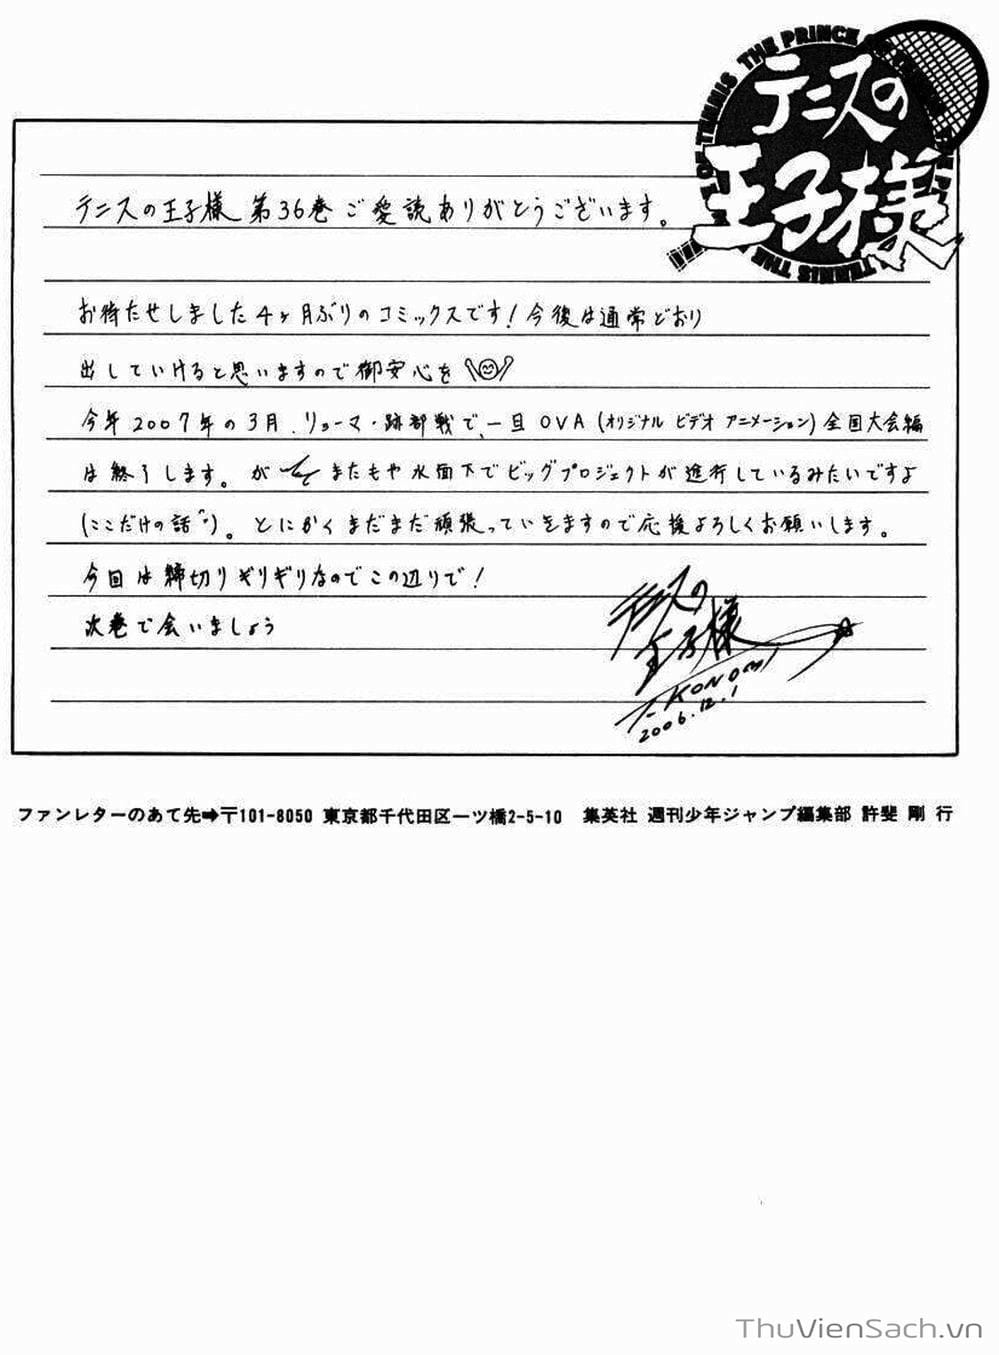 テニスの
王子様
テニスの王子様 第36巻 ご愛読ありがとうございます。
お待たせしました4ヶ月ぶりのコミックスです！今後は通常どおり
出していけると思いますので御安心を
今年2007年の3月、リョーマ・跡部戦で、一旦OVA(オリジナル ビデオ アニメーション)全国大会編
は終了します。が またもや水面下でビッグプロジェクトが進行しているみたいですよ
(ここだけの話)。とにかくまだまだ頑張っていきますので応援よろしくお願いします。
今回は締切りギリギリなのでこの辺りで！
次巻で会いましょう
テニスの
王子様
T-KONOMI
2006.12.1
ファンレターのあて先➡〒101-8050 東京都千代田区一ツ橋2-5-10 集英社 週刊少年ジャンプ編集部 許斐 剛 行
ThuVienSach.vn